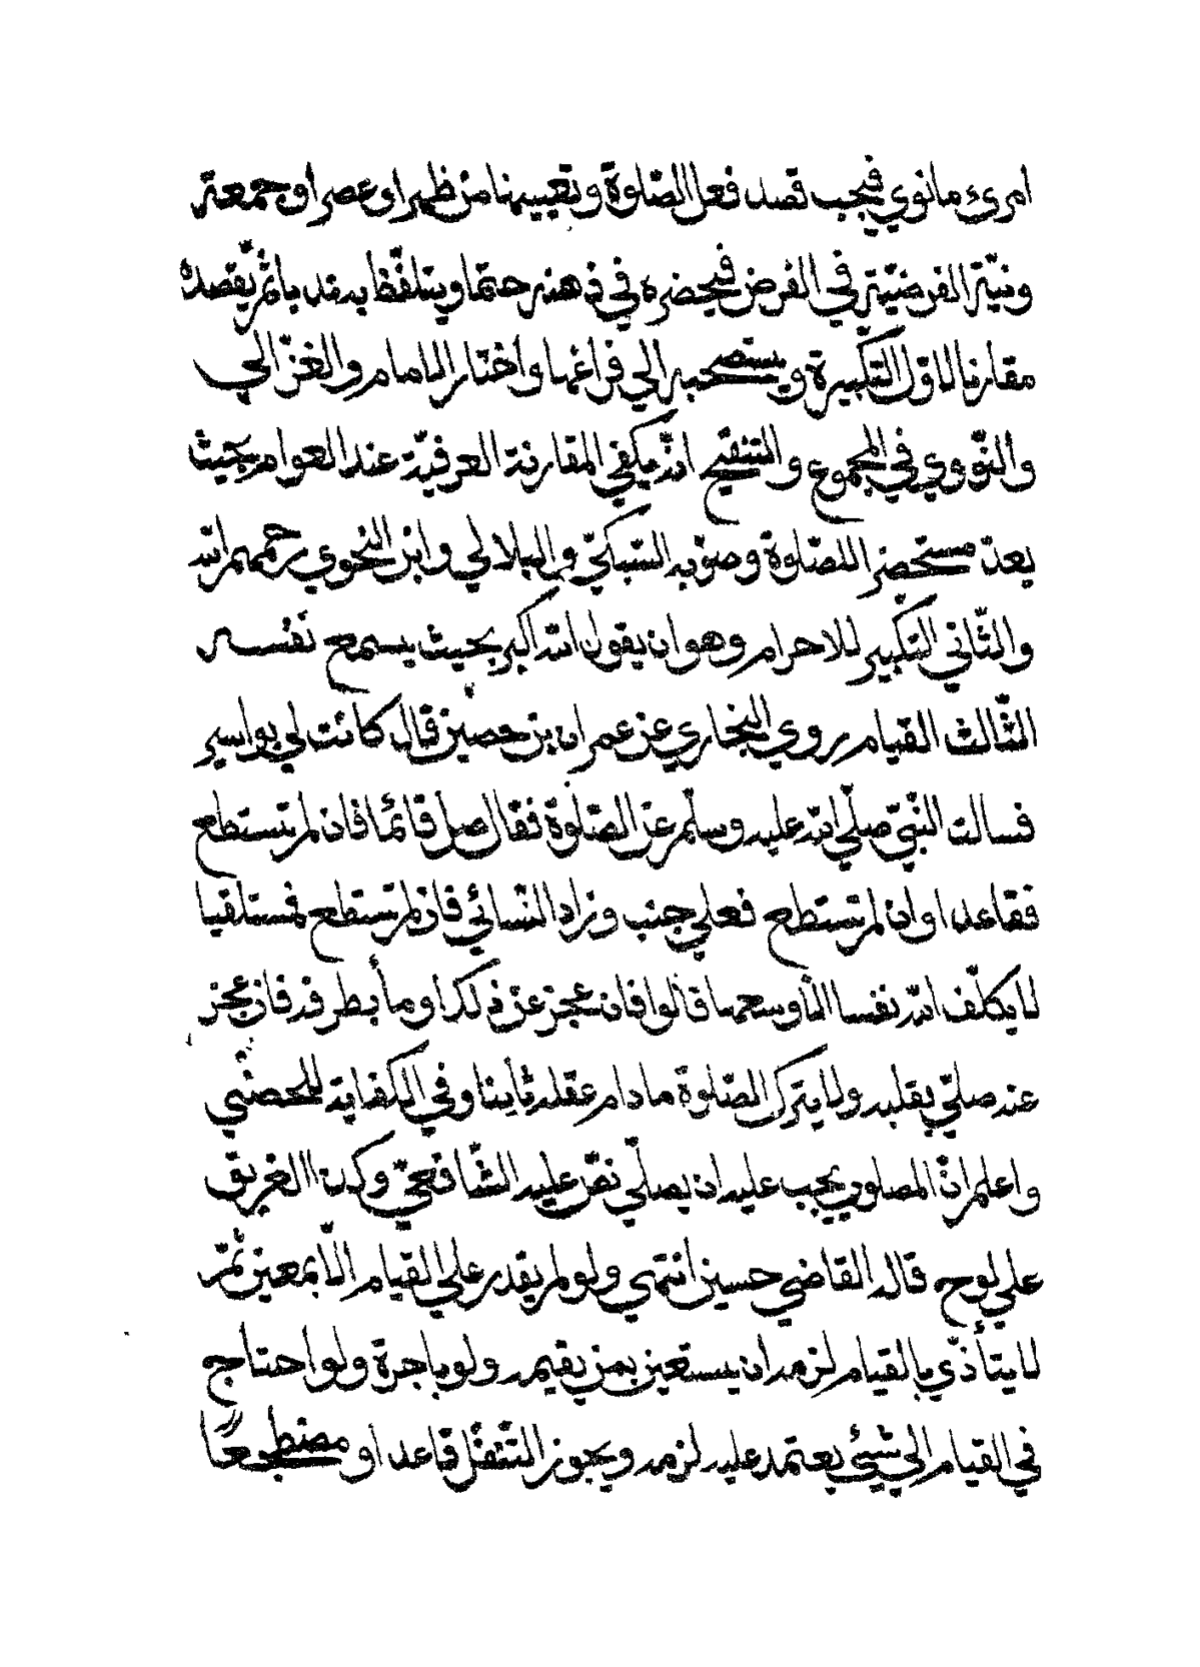 امرئ ما نوي فيجب قصد فعل الصّلوة وتعيينها من ظهر او عصر او جمعة
ونيّة الفرضيّة في الفرض فيحضره في ذهنه حتما ويتلفّظ به ندبا ثمّ يقصده
مقارنا لاوّل التكبيرة ويستصحبه الي فراغها واختار الامام والغزّالي
والنّووي في المجموع والتنقيح انّه يكفي المقارنة العرفيّة عند العوام بحيث
يعدّ مستحضرا للصّلوة وصوّبه السّبكيّ والبلالي وابن النحوي رحمهم الله
والثّاني التكبير للاحرام وهو ان يقول الله اكبر بحيث يسمع نفسه
الثّالث القيام روي البخاري عن عمران بن حصين قال كانت لي بواسير
فسالت النّبيّ صلّي الله عليه وسلّم عن الصّلوة فقال صل قائما فان لم تستطع
فقاعدا وان لم تستطع فعلي جنب وزاد النّسائي فان لم تستطع فمستلقيا
لا يكلّف الله نفسا الّا وسعها قالوا فان عجز عن ذلك اومأ بطرفه فان عجز
عنه صلّي بقلبه ولا يترك الصّلوة ما دام عقله ثابتا وفي الكفاية للحصني
واعلم انّ المصلوب يجب عليه ان يصلّي نصّ عليه الشّافعيّ وكذا الغريق
علي لوح قاله القاضي حسين انتهي ولو لم يقدر علي القيام الّا بمعين ثمّ
لا يتأذّي بالقيام لزمه ان يستعين بمن يقيمه ولو باجرة ولو احتاج
في القيام الي شيئ يعتمد عليه لزمه ويجوز التنفّل قاعدا او مضطجعًا